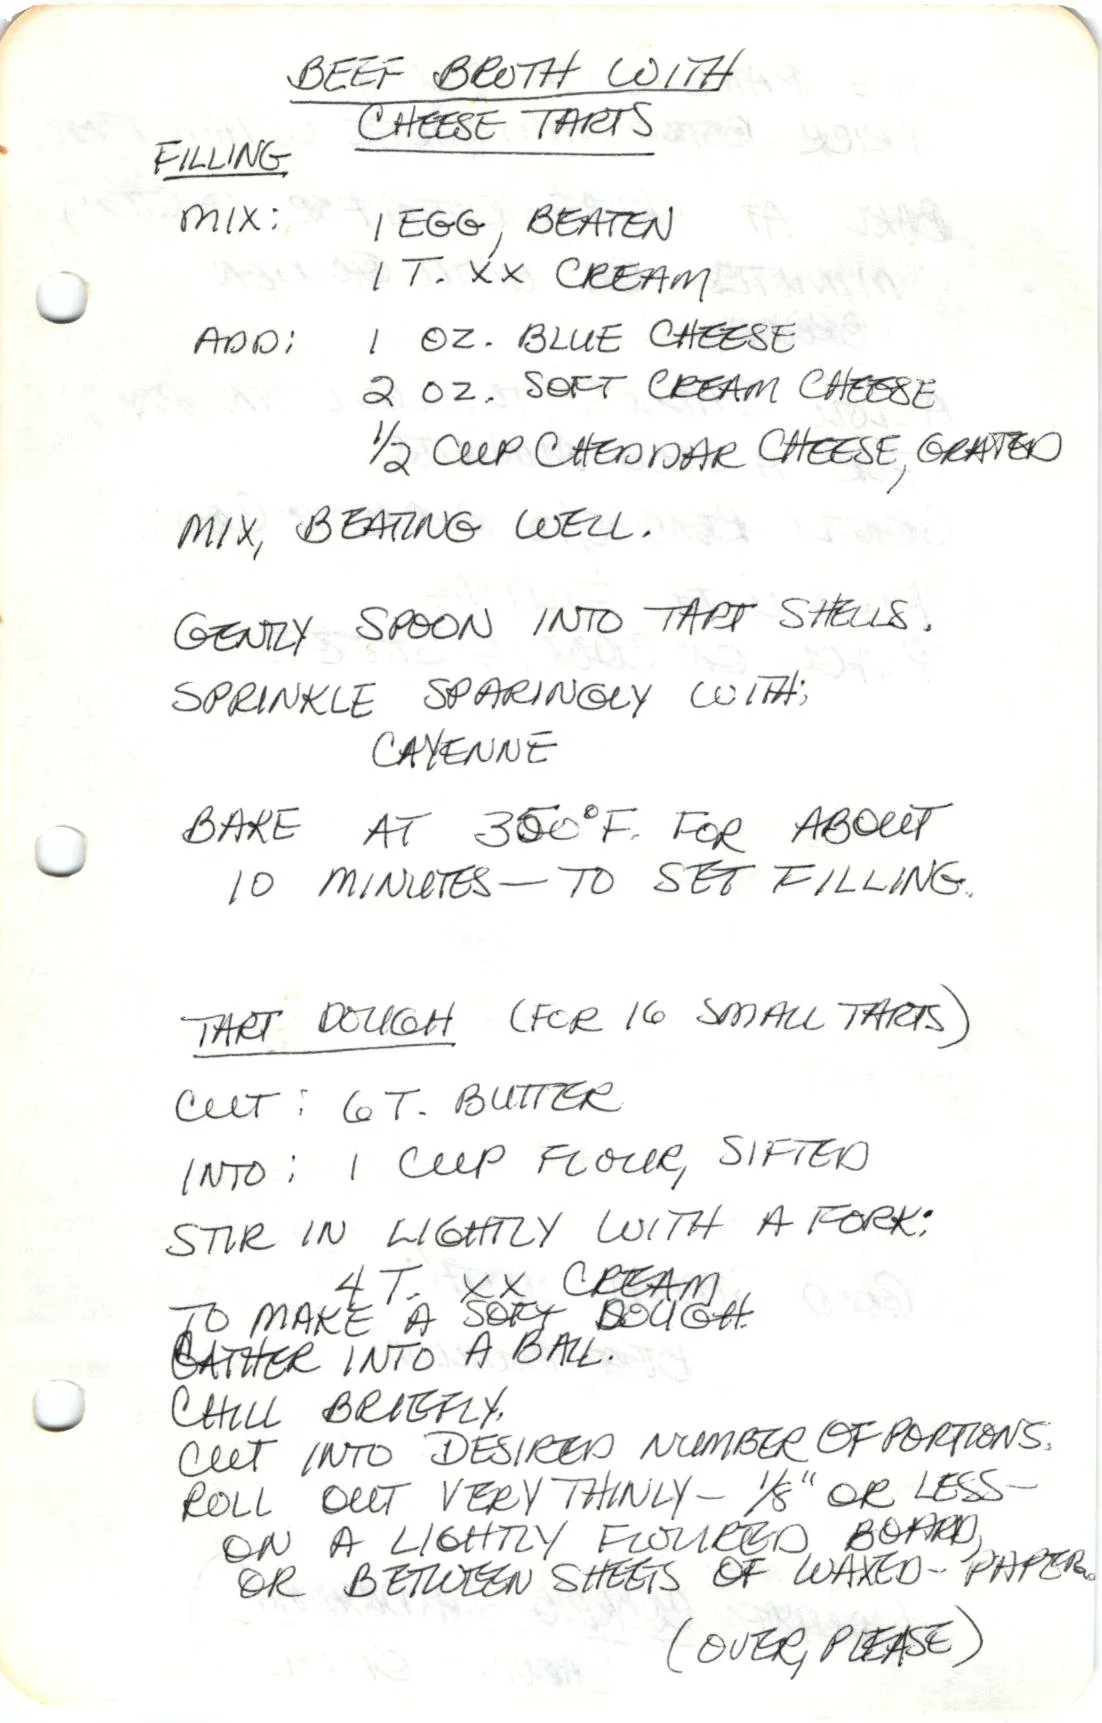 BEEF BROTH WITH
CHEESE TARTS
FILLING
MIX: 1 EGG, BEATEN
1 T. XX CREAM
ADD: 1 OZ. BLUE CHEESE
2 OZ. SOFT CREAM CHEESE
1/2 CUP CHEDDAR CHEESE, GRATED
MIX, BEATING WELL.
GENTLY SPOON INTO TART SHELLS.
SPRINKLE SPARINGLY WITH:
CAYENNE
BAKE AT 350°F. FOR ABOUT
10 MINUTES — TO SET FILLING.
TART DOUGH (FOR 16 SMALL TARTS)
CUT: 6 T. BUTTER
INTO: 1 CUP FLOUR, SIFTED
STIR IN LIGHTLY WITH A FORK:
4 T. XX CREAM
TO MAKE A SOFT DOUGH.
GATHER INTO A BALL.
CHILL BRIEFLY.
CUT INTO DESIRED NUMBER OF PORTIONS.
ROLL OUT VERY THINLY — 1/8" OR LESS —
ON A LIGHTLY FLOURED BOARD,
OR BETWEEN SHEETS OF WAXED-PAPER.
(OVER, PLEASE)